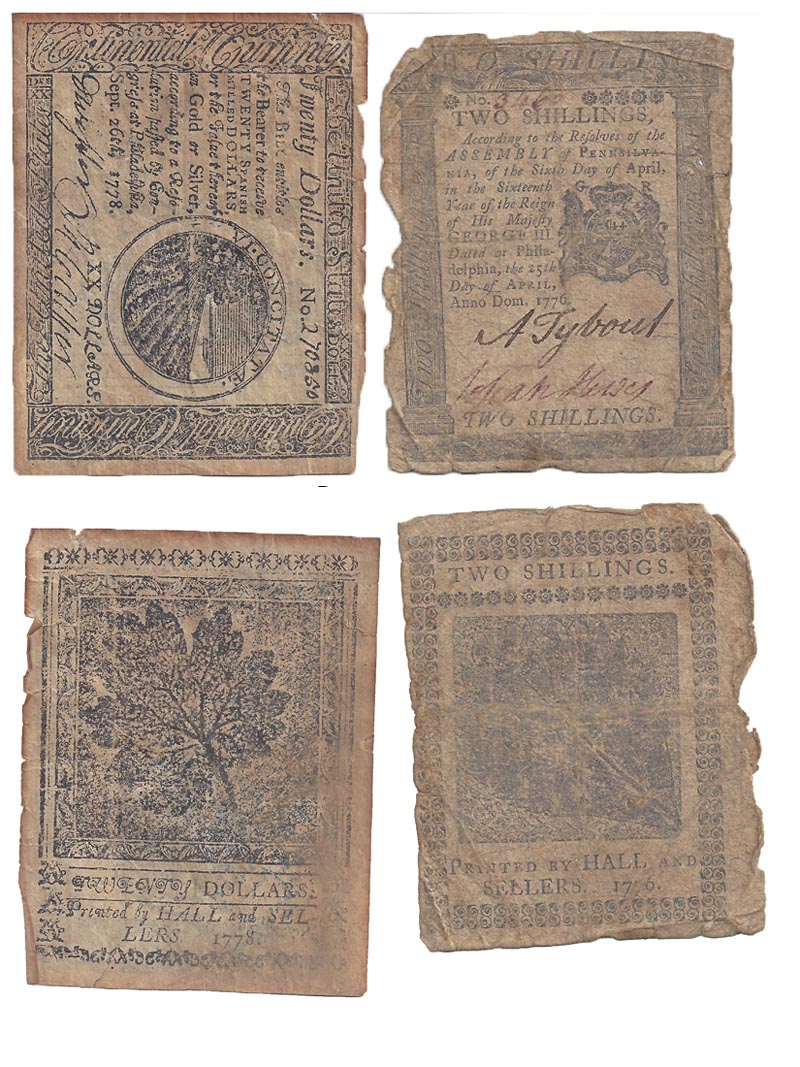 Continental Currency
The United States
Twenty Dollars. No. 270850
This Bill entitles
the Bearer to receive
TWENTY SPANISH
MILLED DOLLARS,
or the Value thereof
in Gold or Silver,
according to a Reso-
lution passed by Con-
gress at Philadelphia,
Sept. 26th, 1778.
VI CONCITATÆ.
XX DOLLARS.
Continental Currency
TWO SHILLIN
No.
TWO SHILLINGS,
According to the Resolves of the
ASSEMBLY of PENNSILVA-
NIA, of the Sixth Day of April,
in the Sixteenth G R
Year of the Reign
of His Majesty
GEORGE III.
Dated at Phila-
delphia, the 25th
Day of APRIL,
Anno Dom. 1776.
A Tybout
TWO SHILLINGS.
TWENTY DOLLARS.
Printed by HALL and SEL-
LERS. 1778.
TWO SHILLINGS.
PRINTED BY HALL AND
SELLERS. 1776.